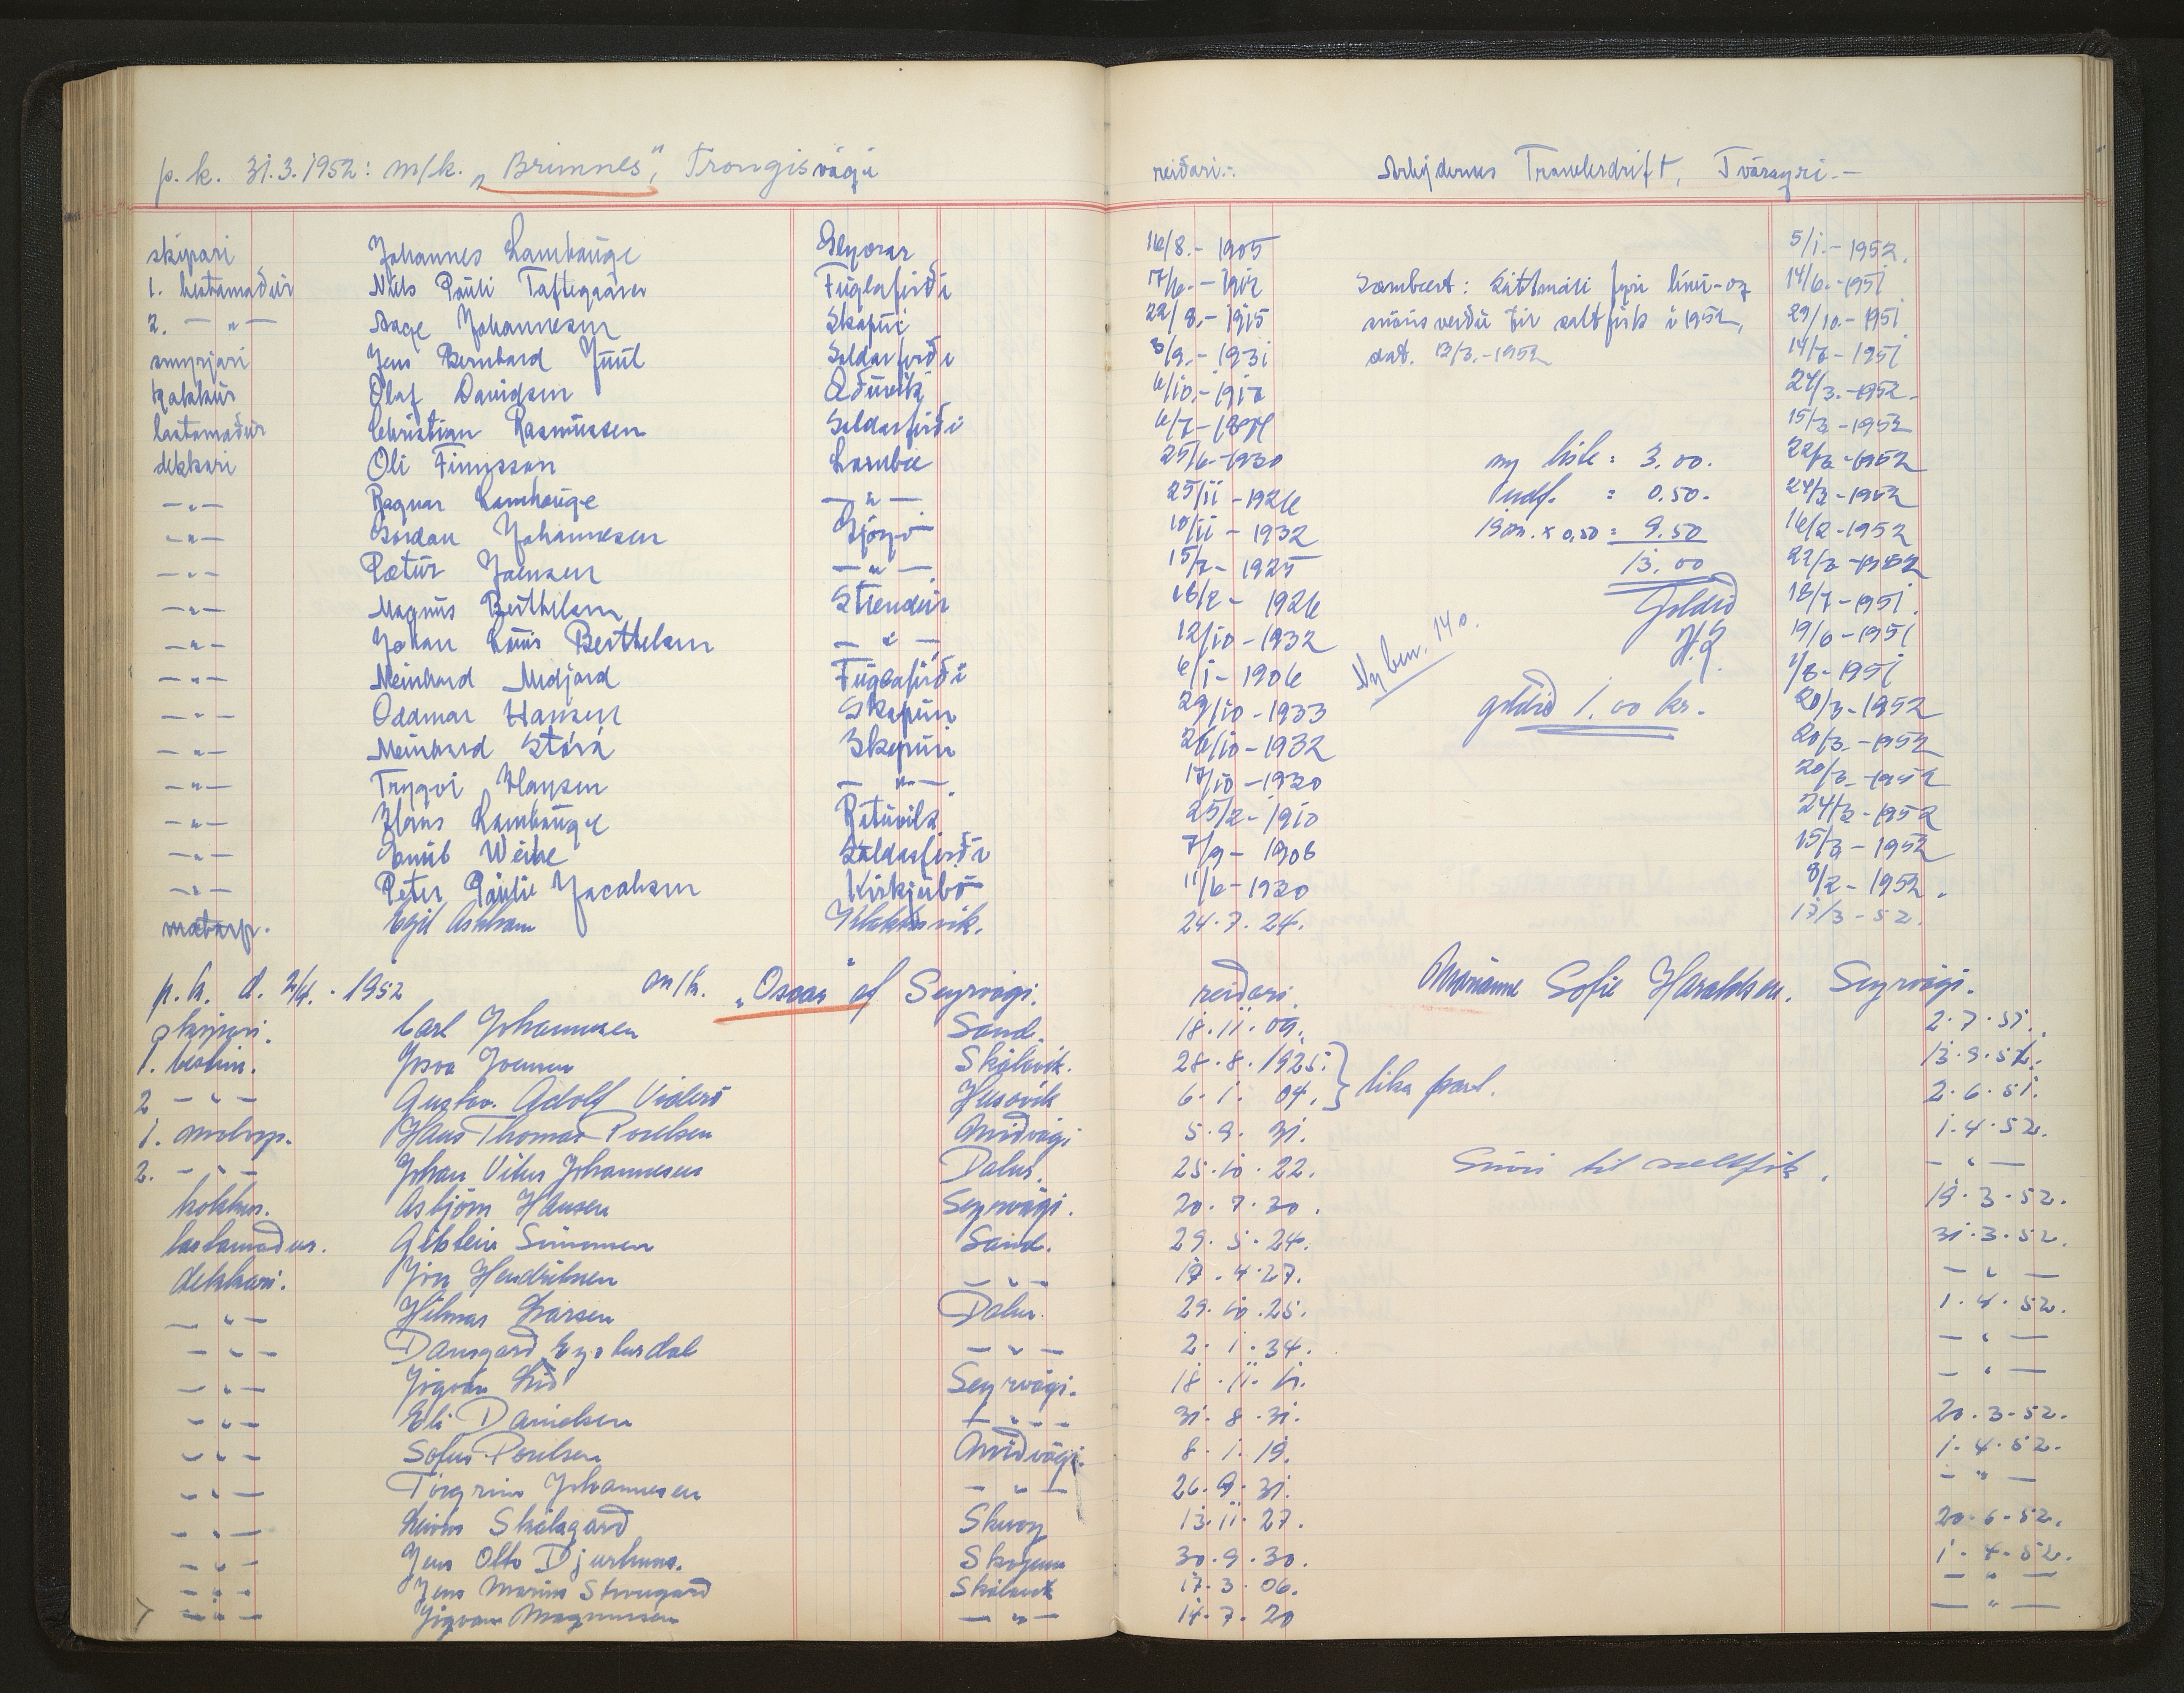 p. k. 31.3.1952: m/k. „Brimnes", Trongisvági reiðari:. Trawlerdrift, Tvøroyri.-
skipari Johannes Lamhauge 16/8.- 1905 5/1.- 1952.
1. bestamaður Niels Pauli Fuglafirði 17/6.- 14/6.-1951
2. - " - Aage Johannesen Skopun 22/8.- 1915 29/10.- 1951
smyrjari Jens Bernhard Juul Saldarfirði 3/9.- 1931 1951
kokkur Olaf Davidsen Æðuvík 6/10.- 24/3.-1952.
lastamaður Christian Rasmussen Saldarfirði 6/7- 15/3-1952
dekkari Oli Finnsson Lambae 25/6-1930 22/3-1952
- " - Ragnar Lamhauge - " - 25/11 -1926 24/3-1952
- " - Jordan Johannesen Gjógv 10/11 - 1932 16/2-1952
- " - Pætur Joensen - " - 1925 22/3 -1952
- " - Magnus Berthelsen Streudur 18/2 - 1926 18/7-1951.
- " - Johan Louis Berthelsen - " - 12/10-1932 19/6-1951
- " - Meinhard Midjord Fuglafirði 6/1- 1906 1/8-1951
- " - Oddmar Hansen Skopun 29/10-1933 20/3-1952
- " - Meinhard Stórá Skopun 26/10-1932 20/3.-1952
- " - Trygvi Hansen - " - 17/10-1930 20/3-1952
- " - Hans Lamhauge 25/2-1910 24/3-1952
- " - Weihe Saldarfirði 7/9- 1908 15/3-1952
- " - Peter Paulie Jacobsen Kirkjubø 11/6-1930 8/2-1952.
matsrp. Egil Askham Klakksvík. 24.7.24. 17/3-52.
Sambært: Sáttmáli fyri línu- og
snørisveiðu til saltfisk í 1952,
dat. 13/3.-1952
ny liste = 3.00.
= 0.50.
19 m. x 0,50 = 9.50
13.00
Goldið
H.J.
14 o.
goldið 1.00 kr.
p. k. d. 2/4.-1952 m/k. „Oscar" af Seyrvági. reiðari. Marianne Sofie Haraldsen. Seyrvági.
skipari. Carl Johannesen Sand. 18.11.09. 2.7.51.
1. bestm. Josva Joensen Skálavík. 28.8.1925. 13.9.51.
2 - " - Gustav Adolf Viderø Húsavík 6.1.04. 2.6.51.
líka part.
1. motorp. Hans Thomas Poulsen Miðvági 5.9.31. 1.4.52.
2. - " - Johan Vitus Johannesen Dalur. 25.10.22. - " -
Snøri til saltfisk.
kokkur. Asbjørn Hansen Seyrvági. 20.7.30. 19.3.52.
lastamaður. Simonsen Sand. 29.5.24. 31.3.52.
dekkari. Jón Hendriksen - " - 17.4.27. - " -
- " - Hilmar Larsen Dalur. 29.10.25. 1.4.52.
- " - Dansgard Eysturdal - " - 2.1.34. - " -
- " - Jógvan Lið Seyrvági. 18.11. - " -
- " - Eli Danielsen - " - 31.8.31. 20.3.52.
- " - Sofus Poulsen Miðvági. 8.1.19. 1.4.52.
- " - Torgrim Johannesen - " - 26.9.31. - " -
- " - Skálagarð Skuvoy 13.11.27. 20.6.52.
- " - Jens Otto Djurhuus. Skopun 30.9.30. 1.4.52.
- " - Jens Marius Skálavík 17.3.06. - " -
- " - Jógvan Magnussen - " - 14.7.20 - " -